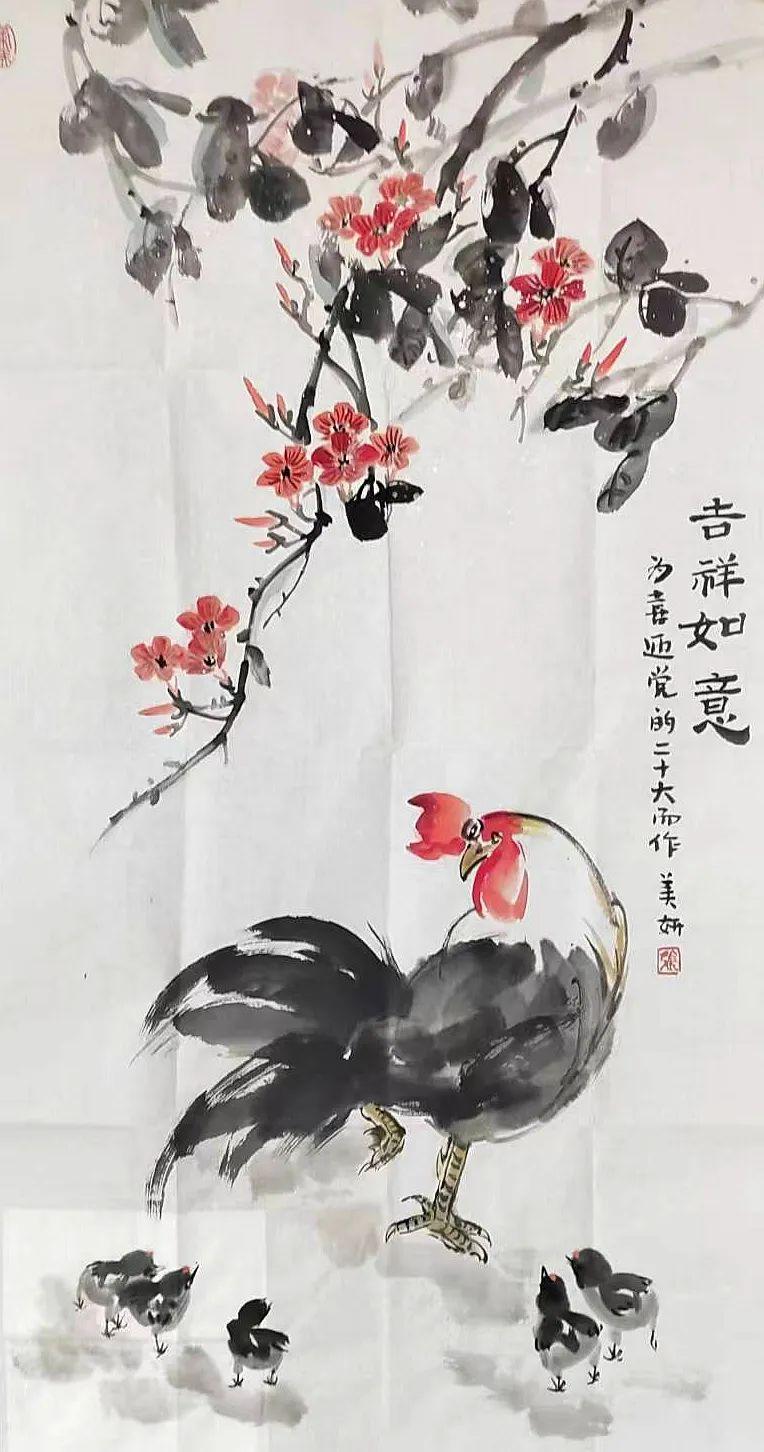 吉祥如意
为喜迎党的二十大而作 美妍